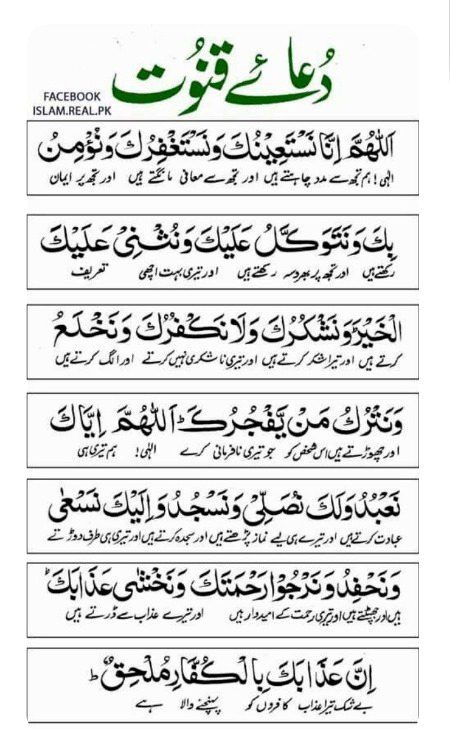 دُعائے قنوُت
FACEBOOK
ISLAM.REAL.PK
اَللّٰهُمَّ اِنَّا نَسْتَعِيْنُكَ وَنَسْتَغْفِرُكَ وَنُؤْمِنُ
الٰہی! ہم تجھ سے مدد چاہتے ہیں اور تجھ سے معافی مانگتے ہیں اور تجھ پر ایمان
بِكَ وَنَتَوَكَّلُ عَلَيْكَ وَنُثْنِیْ عَلَيْكَ
رکھتے ہیں اور تجھ پر بھروسہ رکھتے ہیں اور تیری بہت اچھی تعریف
الْخَيْرَ وَنَشْكُرُكَ وَلَا نَكْفُرُكَ وَنَخْلَعُ
کرتے ہیں اور تیرا شکر کرتے ہیں اور تیری ناشکری نہیں کرتے اور الگ کرتے ہیں
وَنَتْرُكُ مَنْ يَّفْجُرُكَ ؕ اَللّٰهُمَّ اِيَّاكَ
اور چھوڑتے ہیں اس شخص کو جو تیری نافرمانی کرے الٰہی! ہم تیری ہی
نَعْبُدُ وَلَكَ نُصَلِّیْ وَنَسْجُدُ وَاِلَيْكَ نَسْعٰی
عبادت کرتے ہیں اور تیرے ہی لیے نماز پڑھتے ہیں اور سجدہ کرتے ہیں اور تیری ہی طرف دوڑتے
وَنَحْفِدُ وَنَرْجُوْا رَحْمَتَكَ وَنَخْشٰی عَذَابَكَ ؕ
ہیں اور جھپٹتے ہیں اور تیری رحمت کے امیدوار ہیں اور تیرے عذاب سے ڈرتے ہیں
اِنَّ عَذَابَكَ بِالْكُفَّارِ مُلْحِقٌ ؕ
بے شک تیرا عذاب کافروں کو پہنچنے والا ہے